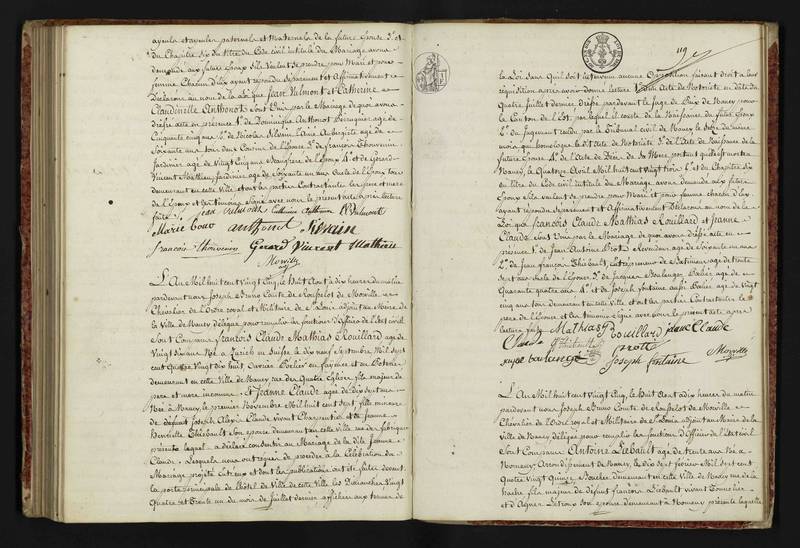 ayeuls et ayeules paternels et maternels de la future Epouse 7° et
du Chapitre Six du titre du Code civil intitulé du Mariage avons
demandé aux futurs Epoux s'ils veulent se prendre pour Mari et pour
femme Chacun d'eux ayant répondu Séparément et Affirmativement
Déclarons au nom de la loi que Jean Velmont et Catherine
Claudinelle Anthonot sont Unis par le Mariage de quoi avons
dressé acte en présence 1° de Dominique Anthonot
Cinquante cinq ans 2° de Nicolas Silvain Aubergiste agé de
Soixante ans tous deux Cousins de l'Epouse 3° de françois thouvenin
Jardinier agé de Vingt Cinq ans de l'Epoux 4° et de Gérard
Vincent Mathieu Jardinier agé de Soixante un ans Oncle de l'Epoux tous
demeurant en cette Ville et ont les parties Contractantes les pere et mere
de l'Epoux et les témoins Signé avec nous le présent acte après lecture
faite. Jean velmont Catherine Velmont
Marie anthonot Silvain
francois thouvenin Gerard Vincent Mathieu
Morville
L'An Mil huit cent Vingt Cinq, le Huit Aout à dix heures du matin
pardevant nous Joseph Bruno Comte de Morville
Chevalier de l'Ordre royal et Militaire de St Louis adjoint au Maire de
la Ville de Nancy délégué pour remplir les fonctions d'Officier de l'Etat civil
Sont Comparus françois Claude Mathias Rouillard agé de
Vingt six ans Né à Zurich en Suisse le dix neuf Septembre Mil sept
cent Quatre Vingt dix huit Ouvrier Potier en fayence et en Poterie
demeurant en cette Ville de Nancy rue des Quatre Eglises fils majeur de
pere et mere inconnus et Jeanne Claude agée de Dix sept ans
Née à Nancy, le premier Novembre Mil huit cent sept, fille mineure
de défunt Joseph Alexis Claude vivant Charpentier et de Jeanne
Henriette Thiébault Son épouse demeurant en cette Ville rue des fabriques
présente laquelle a déclaré consentir au Mariage de la dite Jeanne
Claude, Lesquels nous ont requis de procéder à la Célébration du
Mariage projetté Entre eux et dont les publications ont été faites devant
la porte principale de l'hôtel de Ville de cette Ville les Dimanches Vingt
Quatre et Trente un du mois de Juillet dernier affichées aux termes de
119
la Loi Sans qu'il soit intervenu aucune Opposition faisant droit à leur
réquisition après avoir donné lecture 1° d'un Acte de Notoriété en date du
Quatre Juillet dernier dressé pardevant le Juge de Paix de Nancy pour
le Canton de l'Est, par lequel il conste de la Naissance du futur Epoux
2° du Jugement rendu par le Tribunal civil de Nancy le treize du même
mois qui homologue le dit Acte de Notoriété 3° de l'Acte de Naissance de la
future Epouse 4° de l'Acte de Décès de Son Pere portant qu'il est mort à
Nancy, le Quatorze Avril Mil huit cent Vingt trois 5° et du Chapitre Six
du titre du Code civil intitulé du Mariage avons demandé aux futurs
Epoux s'ils veulent se prendre pour Mari et pour femme chacun d'eux
ayant répondu Séparément et Affirmativement Déclarons au nom de la
Loi que françois Claude Mathias Rouillard et Jeanne
Claude sont Unis par le Mariage de quoi avons dressé acte en
présence 1° de Jean Antoine Pirot Revendeur agé de Soixante un ans
2° de Jean françois Thiébault, entrepreneur de Batimens agé de trente
sept ans Oncle de l'Epouse 3° de Jacques Boulanger agé de
Quarante quatre ans 4° et de Joseph fontaine agé de Vingt
cinq ans tous demeurant en cette Ville et ont les parties Contractantes la
mere de l'Epouse et les témoins Signé avec nous le présent acte après
lecture faite. Mathias Rouillard jeane Claude
Thiebault Pirot
Joseph fontaine Morville
L'An Mil huit cent Vingt Cinq, le Huit Aout à dix heures du matin
pardevant nous Joseph Bruno Comte de Morville
Chevalier de l'Ordre royal et Militaire de St Louis adjoint au Maire de la
Ville de Nancy délégué pour remplir les fonctions d'Officier de l'Etat civil
Sont Comparus Antoine Liébault agé de trente ans Né à
Nomeny Arrondissement de Nancy, le dix sept février Mil sept cent
Quatre Vingt Quinze Boucher demeurant en cette Ville de Nancy rue de la
hache fils majeur de défunt françois Liébault vivant Tonnelier
et d'Agnès Son épouse demeurant à Nomeny présente laquelle